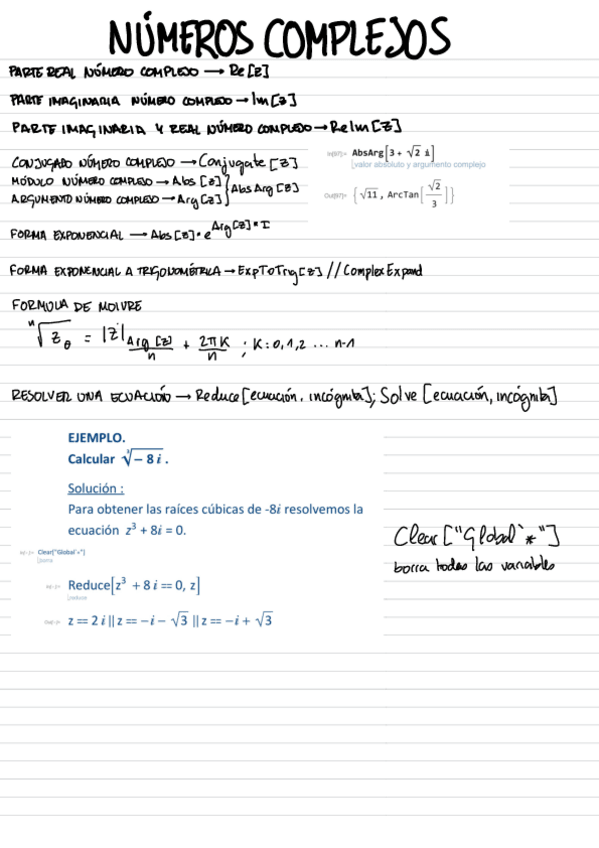 NÚMEROS COMPLEJOS
PARTE REAL NÚMERO COMPLEJO → Re[z]
PARTE IMAGINARIA NÚMERO COMPLEJO → Im[z]
PARTE IMAGINARIA Y REAL NÚMERO COMPLEJO → ReIm[z]
CONJUGADO NÚMERO COMPLEJO → Conjugate[z]
MÓDULO NÚMERO COMPLEJO → Abs[z]
ARGUMENTO NÚMERO COMPLEJO → Arg[z]
} AbsArg[z]
In[97]:= AbsArg[3 + √2 i]
valor absoluto y argumento complejo
Out[97]= {√11, ArcTan[√2/3]}
FORMA EXPONENCIAL → Abs[z]*e^Arg[z]*I
FORMA EXPONENCIAL A TRIGONOMÉTRICA → ExpToTrig[z] // ComplexExpand
FORMULA DE MOIVRE
ⁿ√z_θ = |z|_Arg[z]/n + 2πK/n ; K: 0,1,2 ... n-1
RESOLVER UNA ECUACIÓN → Reduce[ecuación, incógnita]; Solve [ecuación, incógnita]
EJEMPLO.
Calcular ∛-8i.
Solución:
Para obtener las raíces cúbicas de -8i resolvemos la
ecuación z³ + 8i = 0.
Clear["Global`*"]
borra
Reduce[z³ + 8 i == 0, z]
reduce
z == 2 i || z == -i - √3 || z == -i + √3
Clear["Global`*"]
borra todas las variables